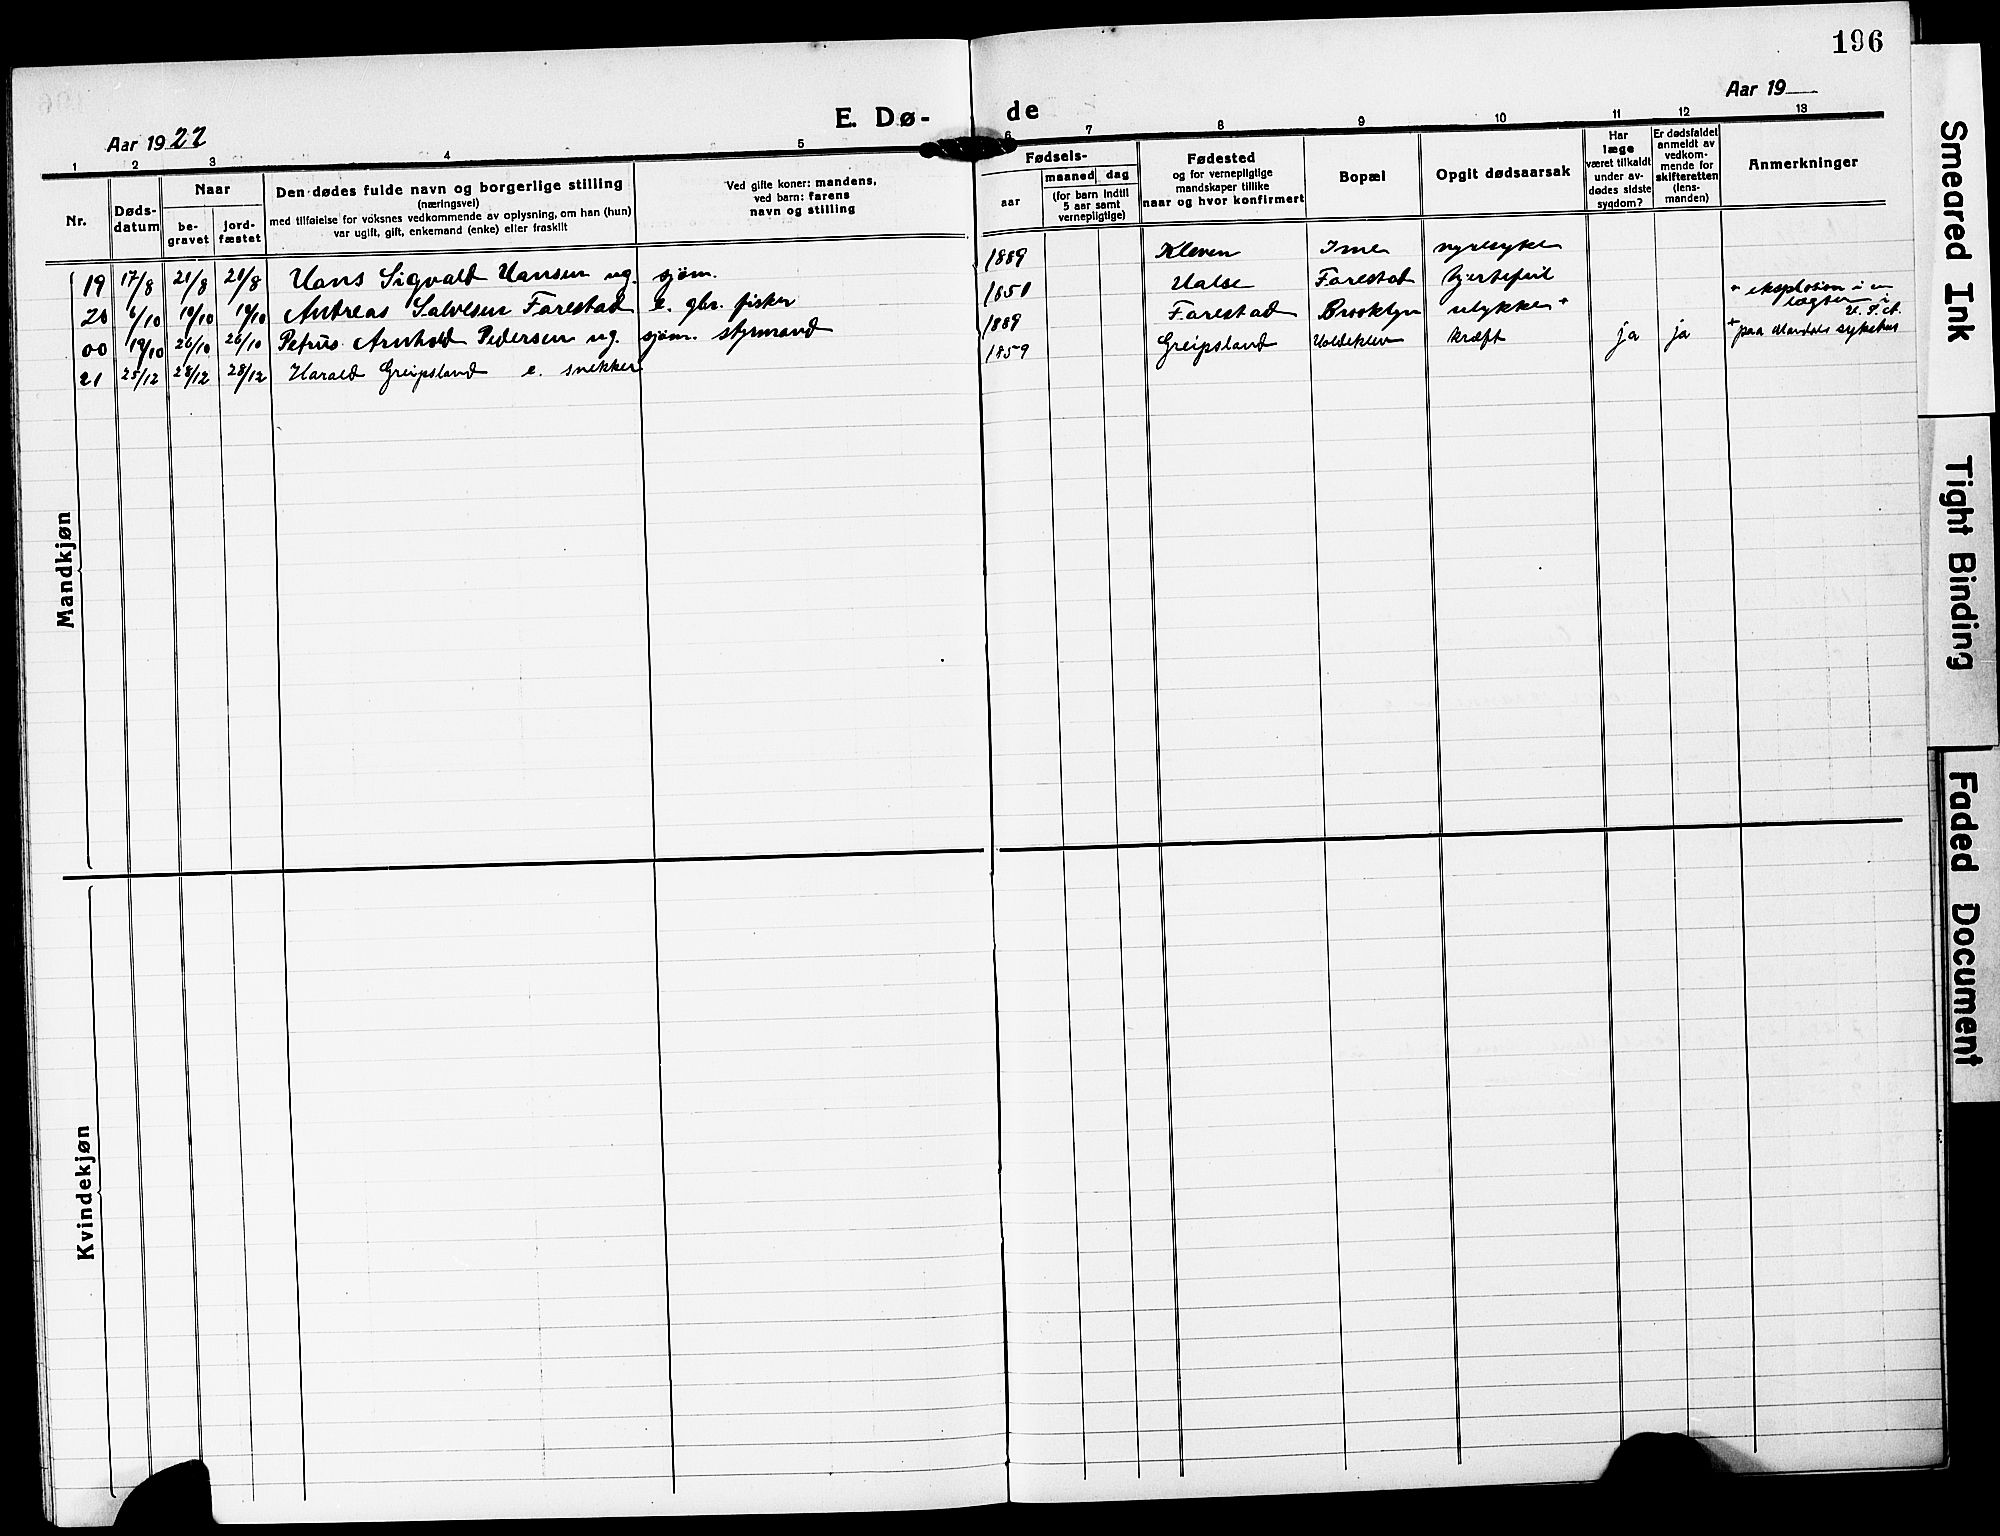 196
Aar 1922
E. Dø-
de
Aar 19
1 2 3 4 5 6 7 8 9 10 11 12 13
Nr.
Døds-
datum
Naar
be-
gravet
jord-
fæstet
Den dødes fulde navn og borgerlige stilling
(næringsvei)
med tilføielse for voksnes vedkommende av oplysning, om han (hun)
var ugift, gift, enkemand (enke) eller fraskilt
Ved gifte koner: mandens,
ved barn: farens
navn og stilling
Fødsels-
aar
maaned dag
(for barn indtil
5 aar samt
vernepligtige)
Fødested
og for vernepligtige
mandskaper tillike
naar og hvor konfirmert
Bopæl
Opgit dødsaarsak
Har
læge
været tilkaldt
under av-
dødes sidste
sygdom?
Er dødsfaldet
anmeldt av
vedkom-
mende for
skifteretten
(lens-
manden)
Anmerkninger
19 17/8 21/8 21/8 Hans Sigvald Hansen ug. sjøm. 1889 Kleven Ime nyresyke
20 6/10 10/10 10/10 Andreas Salvesen Farestad e. gbr. fisker 1851 Halse Farestad hjertefeil
00 19/10 26/10 26/10 Petrus Arnhold Pedersen ug. sjøm. styrmand 1889 Farestad Brooklyn ulykke + + eksplosion i en
lægter i
U. S. A.
21 25/12 28/12 28/12 Harald Greipsland e. snekker 1859 Greipsland Holdeklev kræft ja ja + paa Mandals sykehus
Mandkjøn
Kvindekjøn
Smeared Ink
Tight Binding
Faded Document